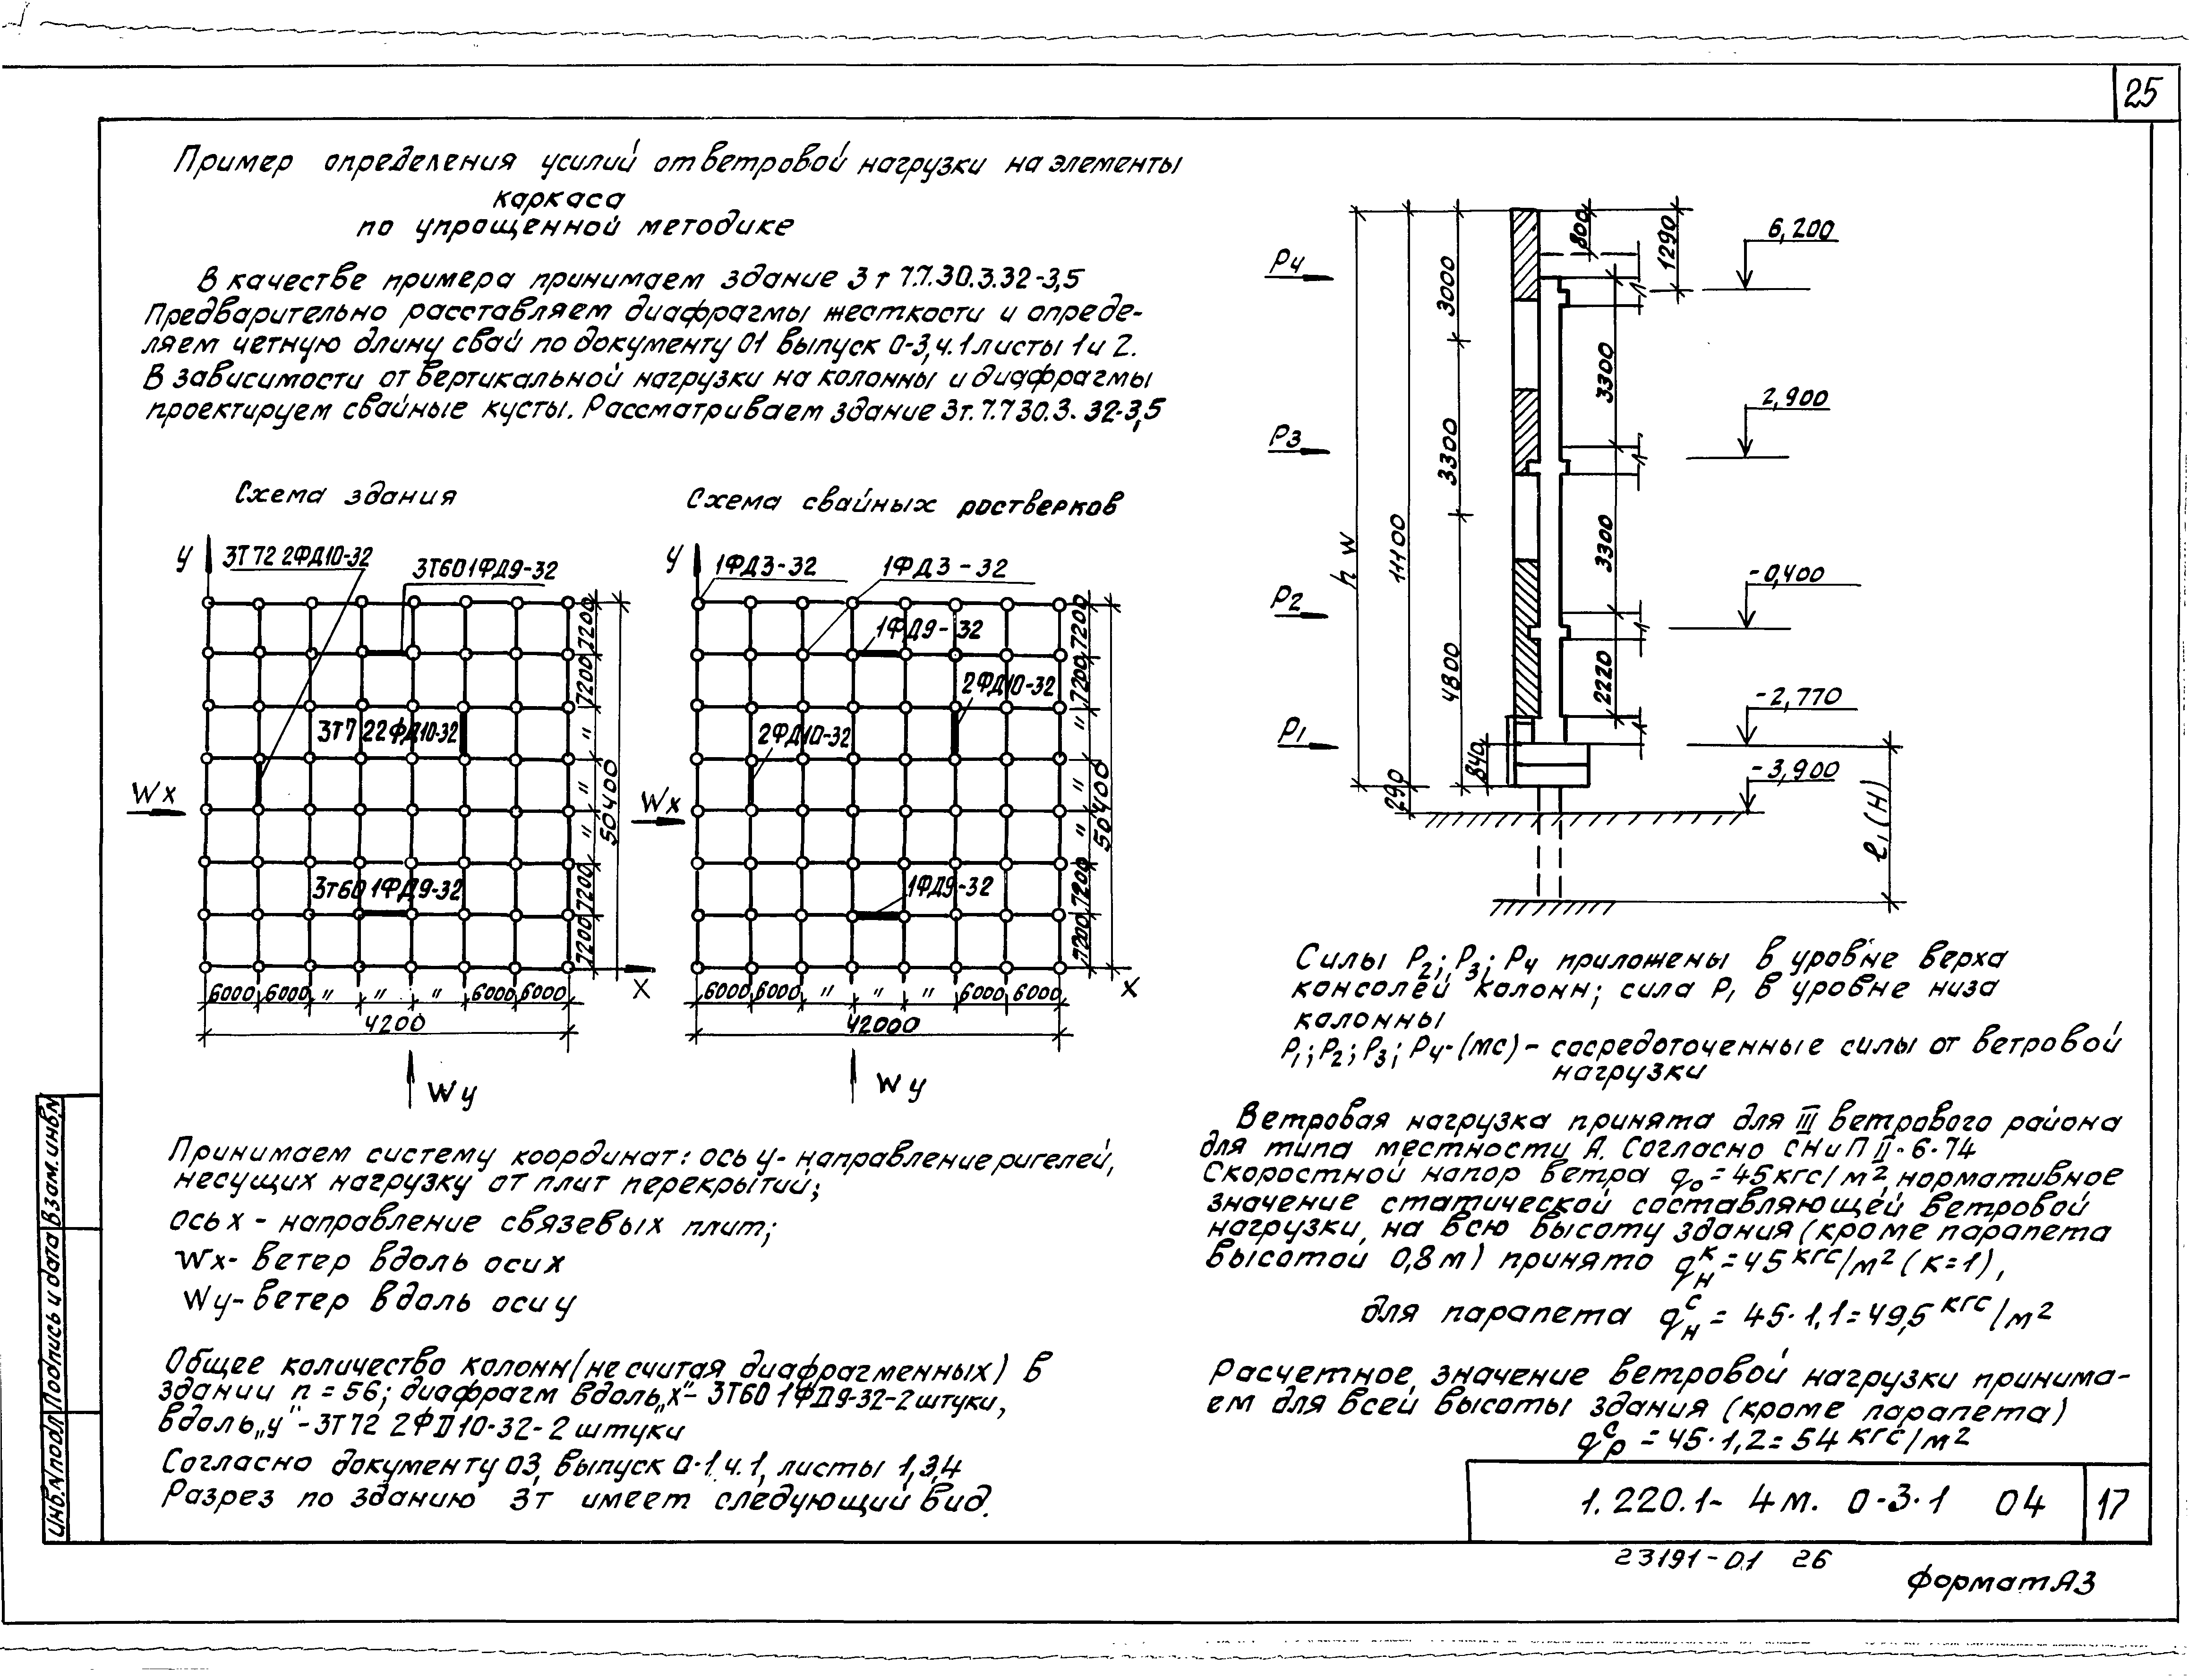 25
Пример определения усилий от ветровой нагрузки на элементы
каркаса
по упрощенной методике
В качестве примера принимаем здание 3т 7.7.30.3.32-3,5
Предварительно расставляем диафрагмы жесткости и опреде-
ляем четную длину свай по документу 01 выпуск 0-3, ч.1 листы 1 и 2.
В зависимости от вертикальной нагрузки на колонны и диафрагмы
проектируем свайные кусты. Рассматриваем здание 3т.7.7.30.3.32-3,5
Схема здания
У
3Т72 2ФД10-32
3Т60 1ФД9-32
3Т72 2ФД10-32
3т60 1ФД9-32
Wx
7200
7200
"
"
"
7200
7200
50400
6000 6000 " " " 6000 6000
4200
X
Wy
Схема свайных ростверков
У
1ФД3-32
1ФД3-32
1ФД9-32
2ФД10-32
2ФД10-32
1ФД9-32
Wx
7200
7200
"
"
"
7200
7200
50400
6000 6000 " " " 6000 6000
42000
X
Wy
Принимаем систему координат: ось у- направление ригелей,
несущих нагрузку от плит перекрытий;
ось х - направление связевых плит;
Wx- ветер вдоль оси х
Wy- ветер вдоль оси у
Общее количество колонн (не считая диафрагменных) в
здании n = 56; диафрагм вдоль „х"- 3Т60 1ФД9-32-2 штуки,
вдоль „у" - 3Т72 2ФД10-32- 2 штуки
Согласно документу 03, выпуск 0-1, ч.1, листы 1,3,4
Разрез по зданию 3т имеет следующий вид.
P4
P3
P2
P1
hw
11100
290
3000
3300
4800
840
800
1290
3300
3300
2220
6,200
2,900
-0,400
-2,770
-3,900
ℓ1 (Н)
Силы P2; P3; P4 приложены в уровне верха
консолей колонн; сила P1 в уровне низа
колонны
P1; P2; P3; P4- (тс) - сосредоточенные силы от ветровой
нагрузки
Ветровая нагрузка принята для III ветрового района
для типа местности А. Согласно СНиП II-6-74
Скоростной напор ветра q0 = 45 кгс/м2, нормативное
значение статической составляющей ветровой
нагрузки, на всю высоту здания (кроме парапета
высотой 0,8 м) принято qнк = 45 кгс/м2 (к=1),
для парапета qнс = 45·1,1 = 49,5 кгс/м2
Расчетное значение ветровой нагрузки принима-
ем для всей высоты здания (кроме парапета)
qрс = 45·1,2 = 54 кгс/м2
1.220.1- 4м. 0-3·1 04
17
23191-01 26
Формат А3
Инв.N подл
Подпись и дата
Взам. инв.N